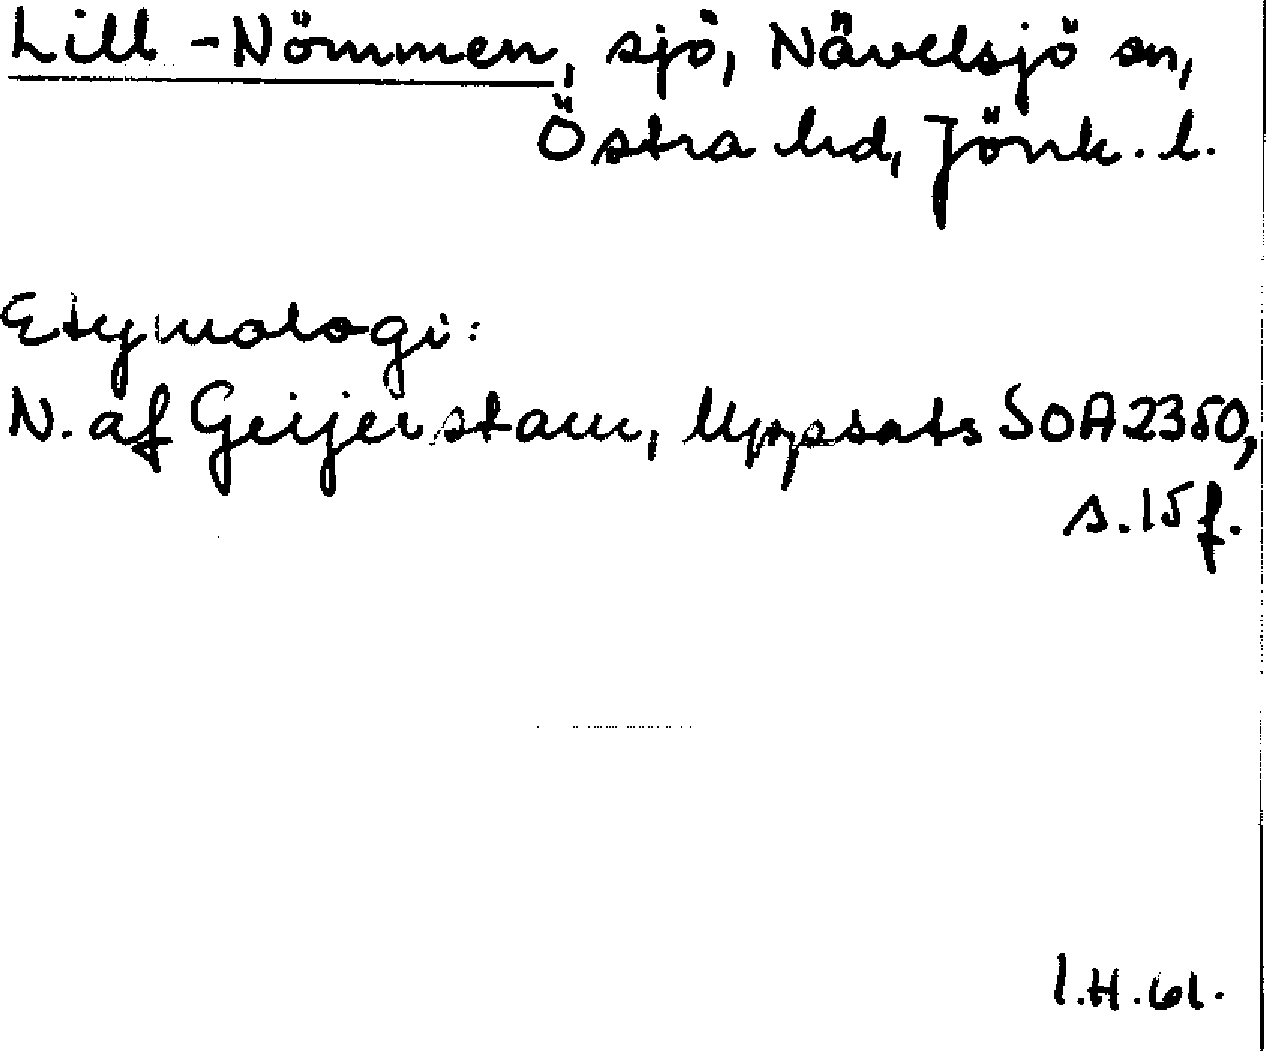 Lill-Nömmen, sjö, Nävelsjö sn,
Östra hd, Jönk. l.
Etymologi:
N. af Geijerstam, Uppsats SOA 2350,
s. 15 f.
I.H. 61.